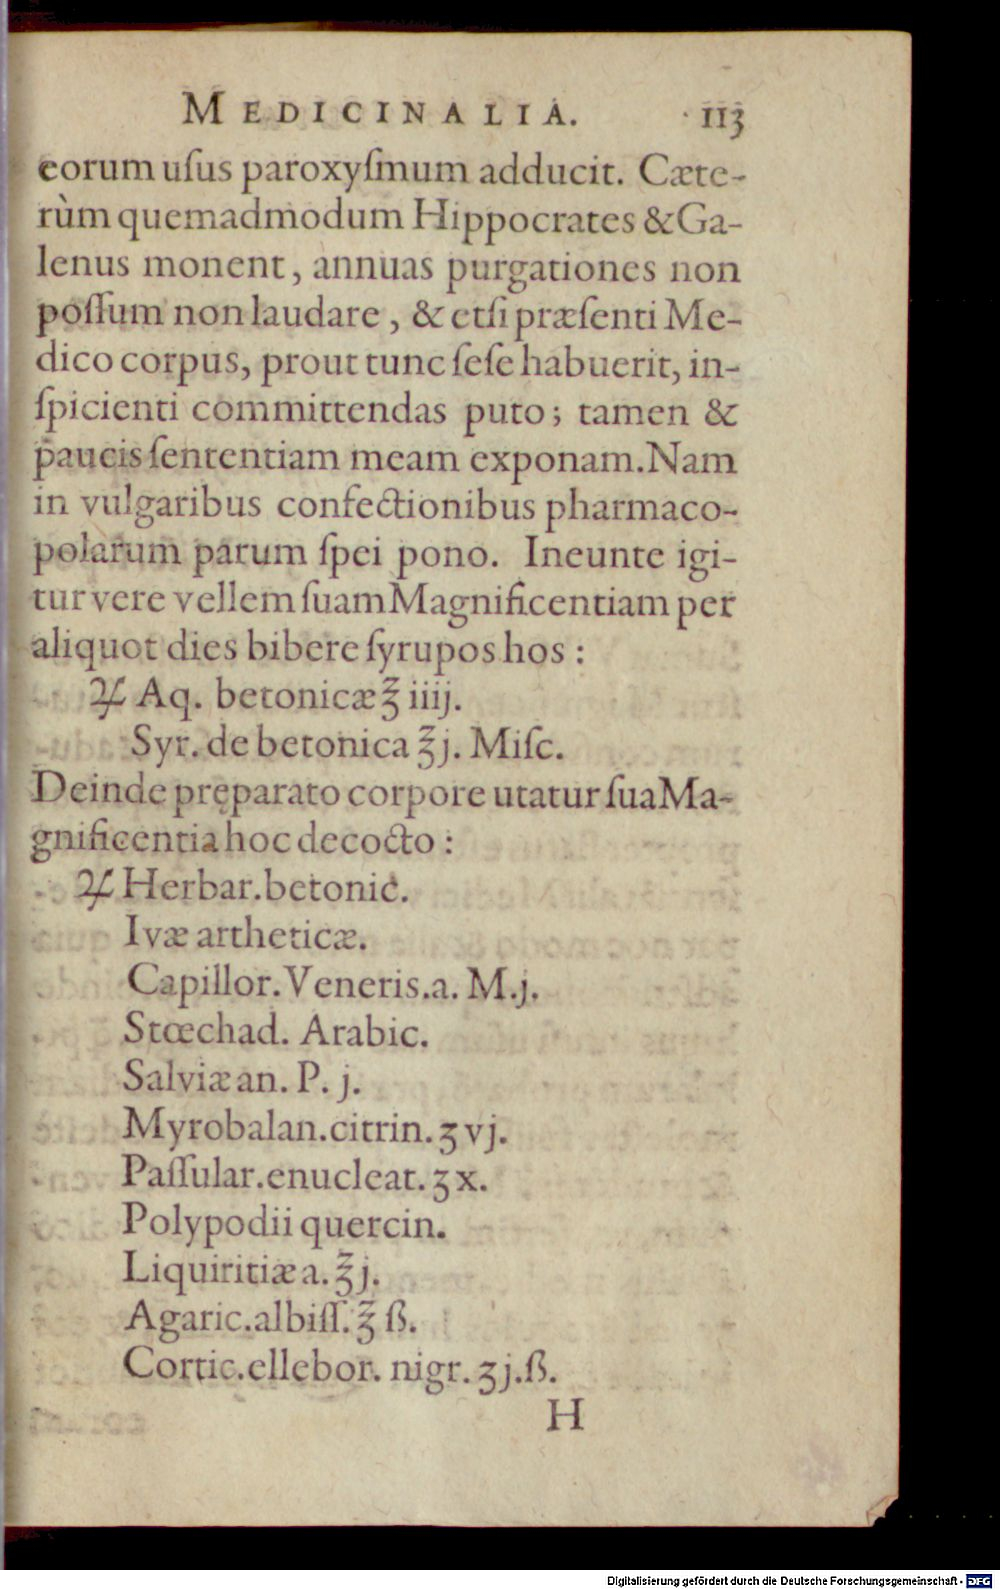 MEDICINALIA. 113
eorum uſus paroxyſmum adducit. Cæte-
rùm quemadmodum Hippocrates & Ga-
lenus monent, annuas purgationes non
poſſum non laudare, & etſi præſenti Me-
dico corpus, prout tunc ſeſe habuerit, in-
ſpicienti committendas puto; tamen &
paucis ſententiam meam exponam. Nam
in vulgaribus confectionibus pharmaco-
polarum parum ſpei pono. Ineunte igi-
tur vere vellem ſuam Magnificentiam per
aliquot dies bibere ſyrupos hos:
♃ Aq. betonicæ ℥ iiij.
Syr. de betonica ℥ j. Miſc.
Deinde pręparato corpore utatur ſua Ma-
gnificentia hoc decocto:
♃ Herbar. betonic.
Ivæ artheticæ.
Capillor. Veneris. a. M. j.
Stœchad. Arabic.
Salviæ an. P. j.
Myrobalan. citrin. ʒ vj.
Paſſular. enucleat. ʒ x.
Polypodii quercin.
Liquiritiæ a. ℥ j.
Agaric. albiſſ. ℥ ß.
Cortic. ellebor. nigr. ʒ j. ß.
H
Digitalisierung gefördert durch die Deutsche Forschungsgemeinschaft - DFG